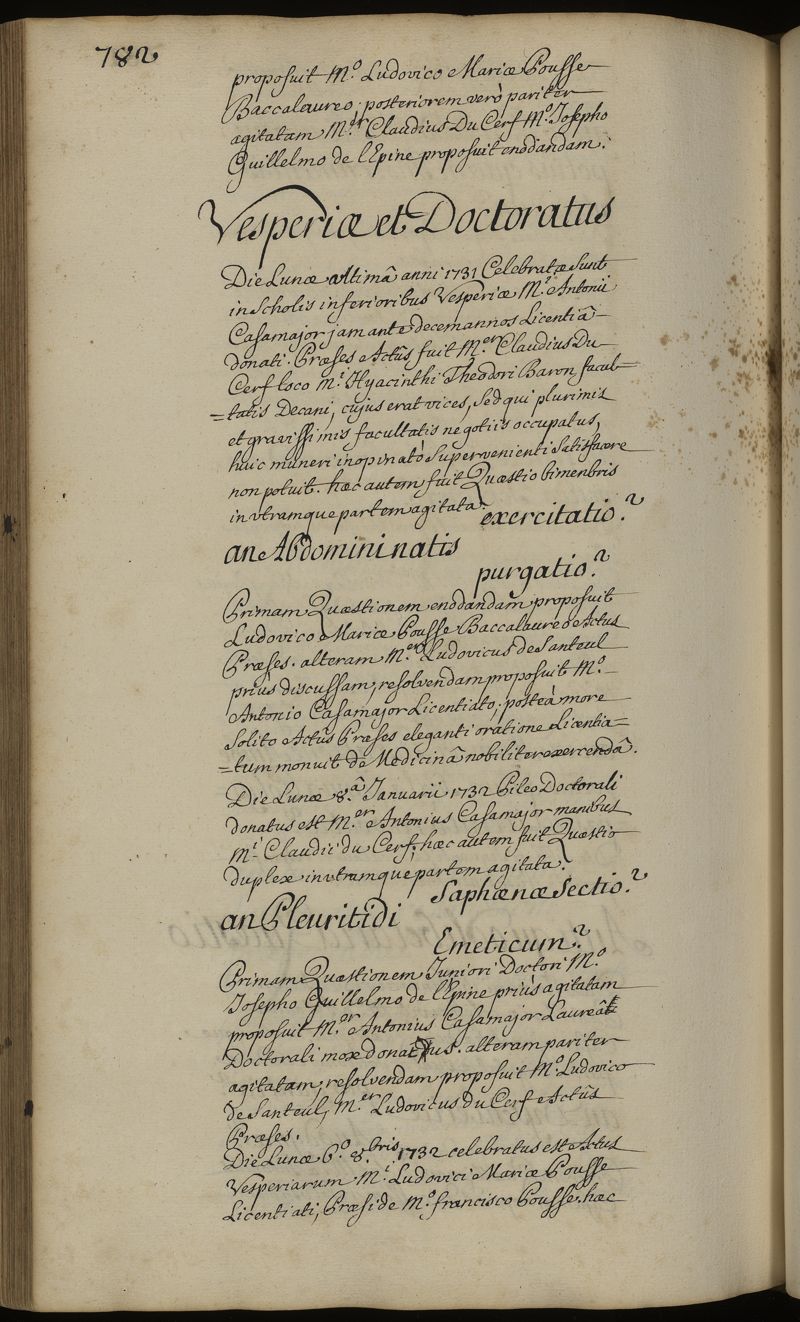 782
proposuit M.º Ludovico Mariæ Pousse
Baccalaureo; posteriorem verò pariter
agitatam M.er Claudius Du Cerf M.º Josepho
Guillelmo de l'Epine proposuit enodandam.
Vesperiæ et Doctoratus
Die Lunæ ultimâ anni 1731 Celebratæ sunt
in Scholis inferioribus Vesperiæ M.i Antonii
Casamajor jam ante decem annos Licentiâ
donati. Præses Actûs fuit M.er Claudius Du
Cerf loco M.i Hyacinthi Theodori Baron facul=
=tatis Decani, cujus erat vices, sed qui plurimis
et gravissimis facultatis negotiis occupatus,
huic muneri inopinatò supervenienti satisfacere
non potuit. hæc autem fuit Quæstio bimenbris
in utramque partem agitata.
exercitatio?
an Abdomini natis
purgatio?
Primam Quæstionem enodandam proposuit
Ludovico Mariæ Pousse Baccalaureo Actus
Præses. alteram M.er Ludovicus de Santeul
priùs discussam, resolvendam proposuit M.º
Antonio Casamajor Licentiato; posteà more
solito Actus Præses eleganti oratione Licentia=
=tum monuit de Medicinâ nobiliter exercendâ.
Die Lunæ 8.â Januarii 1732 Pileo Doctorali
donatus est M.er Antonius Casamajor manibus
M.i Claudii du Cerf. hæc autem fuit Quæstio
duplex in utramque partem agitata.
Saphænæ Sectio?
an Pleuritidi
Emeticum?
Primam Quæstionem Juniori Doctori M.º
Josepho Guillelmo de l'Epine priùs agitatam
proposuit M.er Antonius Casamajor Laureâ
Doctorali mox donatus. alteram pariter
agitatam, resolvendam proposuit M.º Ludovico
de Santeul, M.er Ludovicus du Cerf Actûs
Præses.
Die Lunæ 6.º 8.bris 1732 celebratus est Actus
Vesperiarum M.i Ludovici Mariæ Pousse
Licentiati, Præside M.º francisco Pousse. hæc